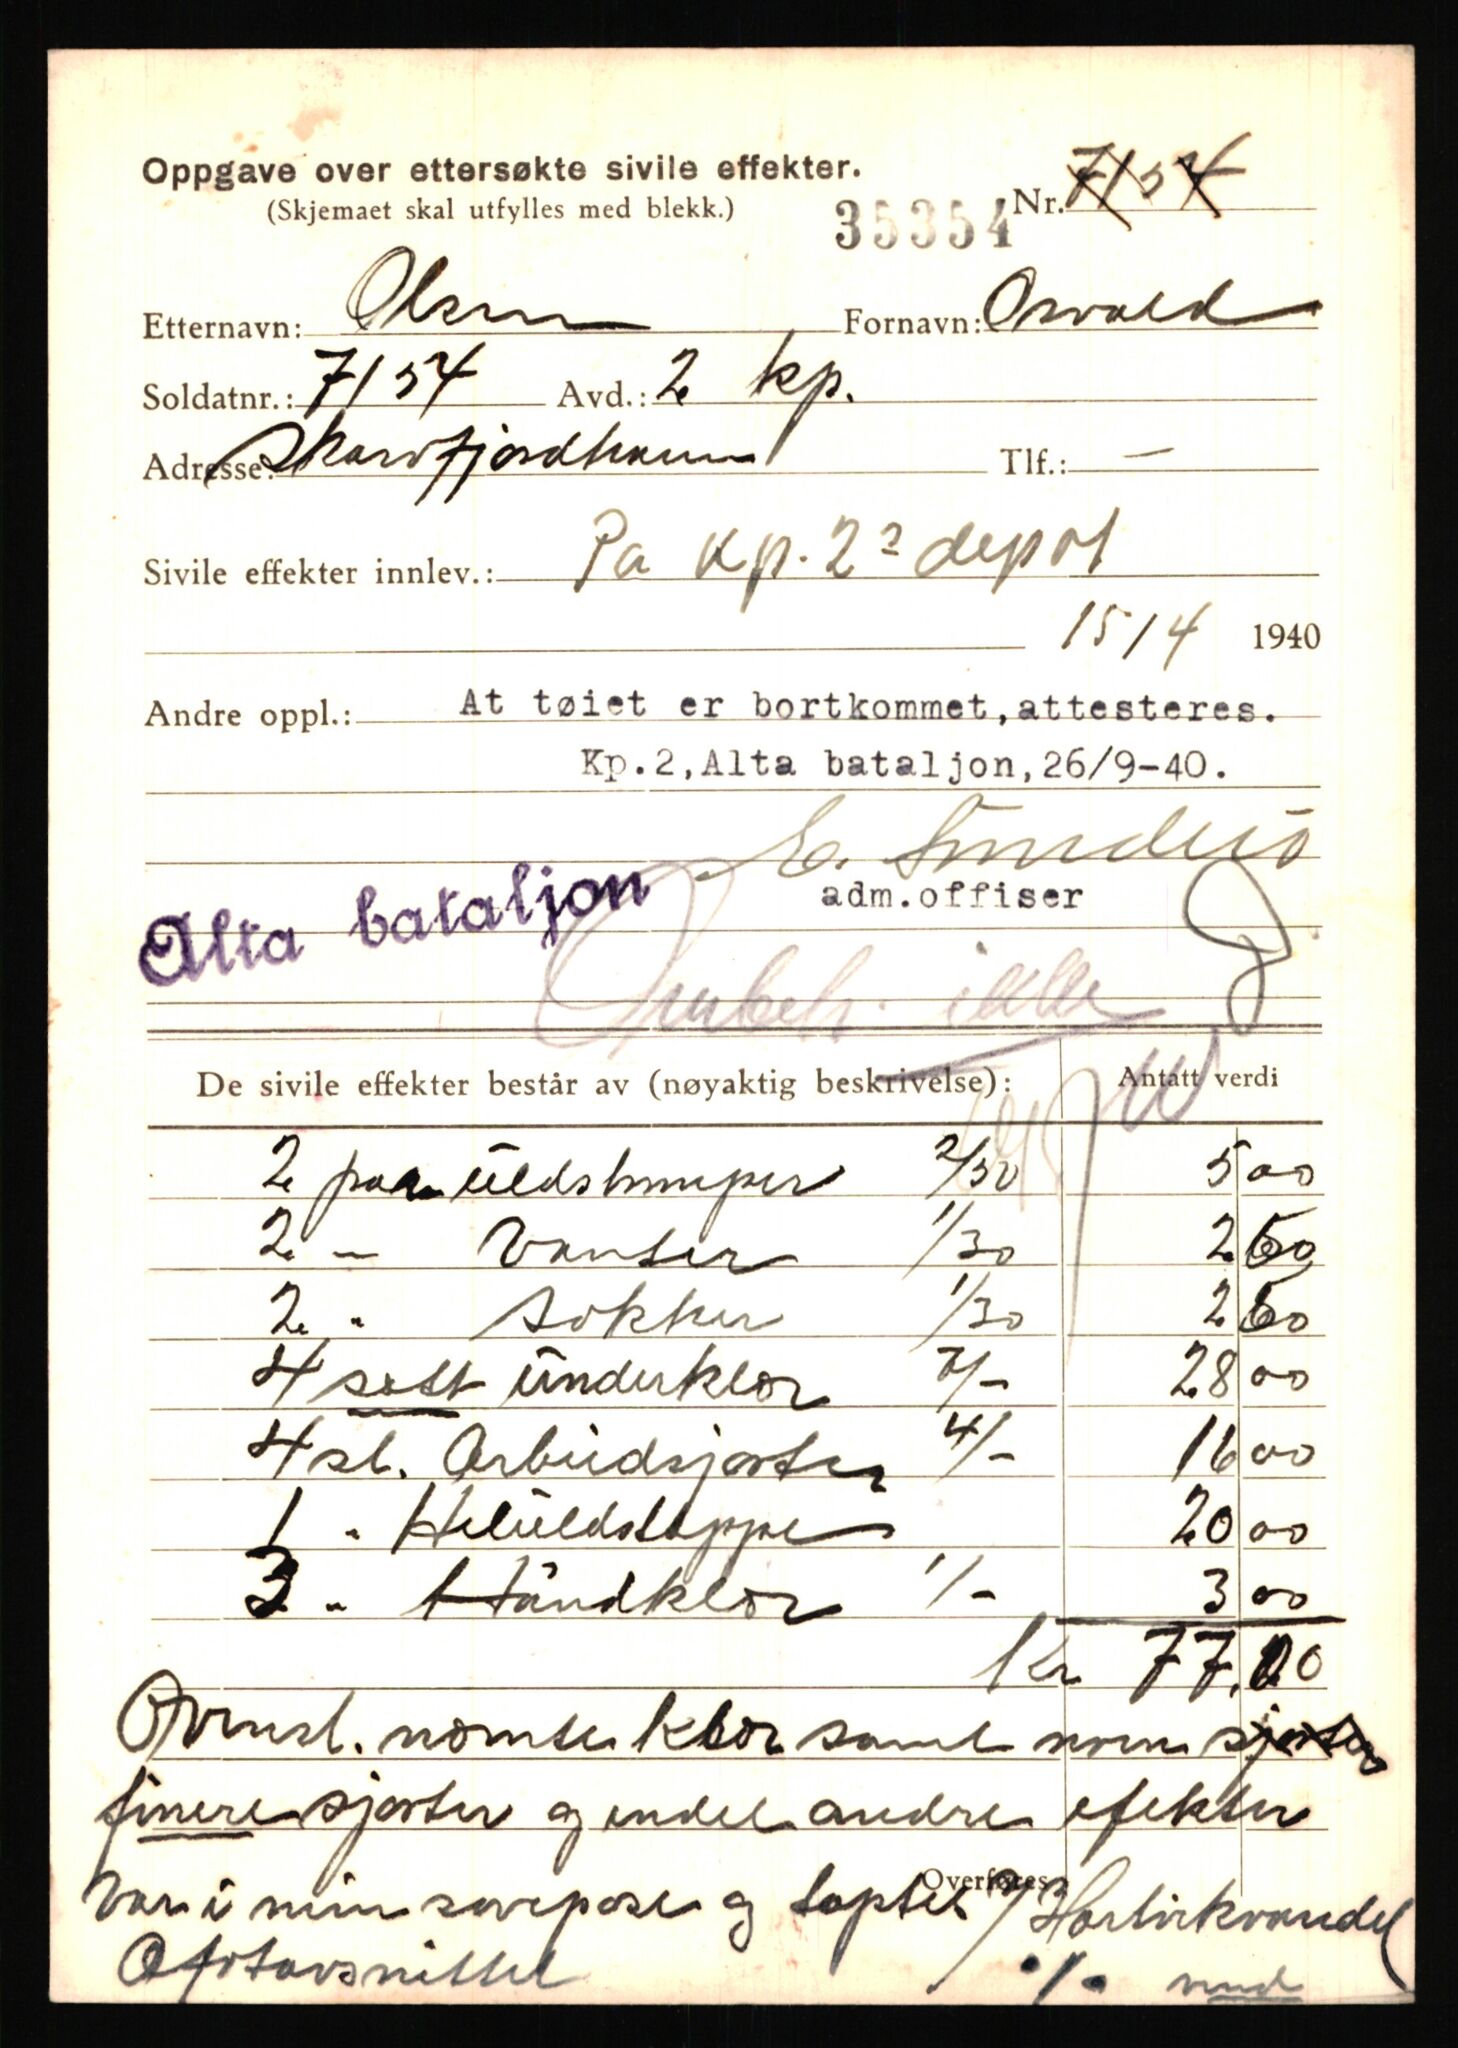 Oppgave over ettersøkte sivile effekter.
(Skjemaet skal utfylles med blekk.)
35354 Nr. 7154
Etternavn: Olsen Fornavn: Osvald
Soldatnr.: 7154 Avd.: 2 kp.
Adresse: Skarvfjordhamn Tlf.: —
Sivile effekter innlev.: Pa Kp. 2s depot
15/4 1940
Andre oppl.: At tøiet er bortkommet, attesteres.
Kp.2, Alta bataljon, 26/9-40.
E.
adm.offiser
Alta bataljon
ikke
De sivile effekter består av (nøyaktig beskrivelse): Antatt verdi
2 par ūldstrømper 2/50 5 00
2 — Vanter 1/30 2 60
2 " Sokker 1/30 2 60
4 sett ūnderklær 7/- 28 00
4 st. Arbeidsjorter 4/- 16 00
1 " Helūldsteppe 20 00
3 " Håndklær 1/- 3 00
Kr 77,00
Ovenst. nevnte klær samt noen sjorter
finere sjorter og endel andre efekter
Var i min sovepose og taptes
Overføres
Hartvikvandet
Ofotavsnittet
·/. vend